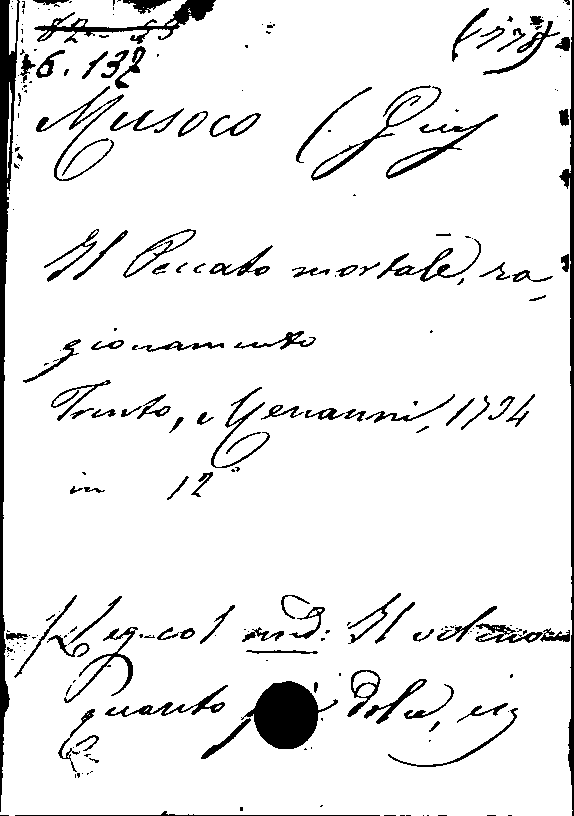 82-53
6.132
(778)
Musoco (Giu
Il Peccato mortale, ra-
gionamento
Trento, Monauni, 1734
in 12°
Leg. col
Il veleno
quanto più dolce, ecc